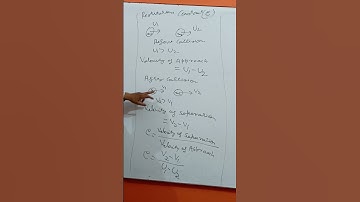 U1 U2
Before Collision
U1 > U2
Velocity of Approach
= U1 - U2
After Collision
V1 V2
V2 > V1
Velocity of Separation
= V2 - V1
e = Velocity of Separation
Velocity of Approach
e = V2 - V1
U1 - U2